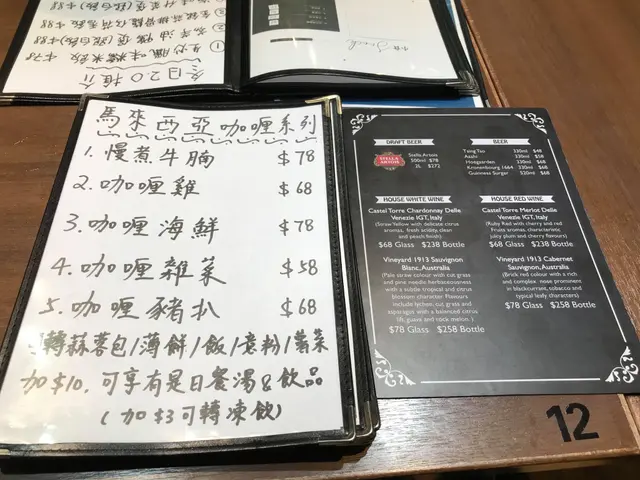 馬來西亞咖喱系列
1. 慢煮牛腩 $78
2. 咖喱雞 $68
3. 咖喱海鮮 $78
4. 咖喱雜菜 $58
5. 咖喱豬扒 $68
轉蒜蓉包/薄餅/飯/意粉/薯菜
加$10, 可享有是日餐湯&飲品
(加$3可轉凍飲)
DRAFT BEER
STELLA ARTOIS
Stella Artois
500ml $78
2L $272
BEER
Tsing Tao 330ml $48
Asahi 330ml $58
Hoegaarden 330ml $68
Kronenbourg 1664 330ml $68
Guinness Surger 520ml $68
HOUSE WHITE WINE
Castel Torre Chardonnay Delle
Venezie IGT, Italy
(Straw Yellow with delicate citrus
aromas, fresh acidity, clean
and peach finish)
$68 Glass $238 Bottle
Vineyard 1913 Sauvignon
Blanc, Australia
(Pale straw colour with cut grass
and pine needle, herbaceousness
with a subtle tropical and citrus
blossom character. Flavours
include lychee, cut grass and
asparagus with a balanced citrus
lift, guava and rock melon.)
$78 Glass $258 Bottle
HOUSE RED WINE
Castel Torre Merlot Delle
Venezie IGT, Italy
(Ruby Red with cherry and red
Fruits aromas, characteristic,
juicy plum and cherry flavours)
$68 Glass $238 Bottle
Vineyard 1913 Cabernet
Sauvignon, Australia
(Brick red colour with a rich
and complex, nose prominent
in blackcurrant, tobacco and
typical leafy characters)
$78 Glass $258 Bottle
12
冬日2.0推介